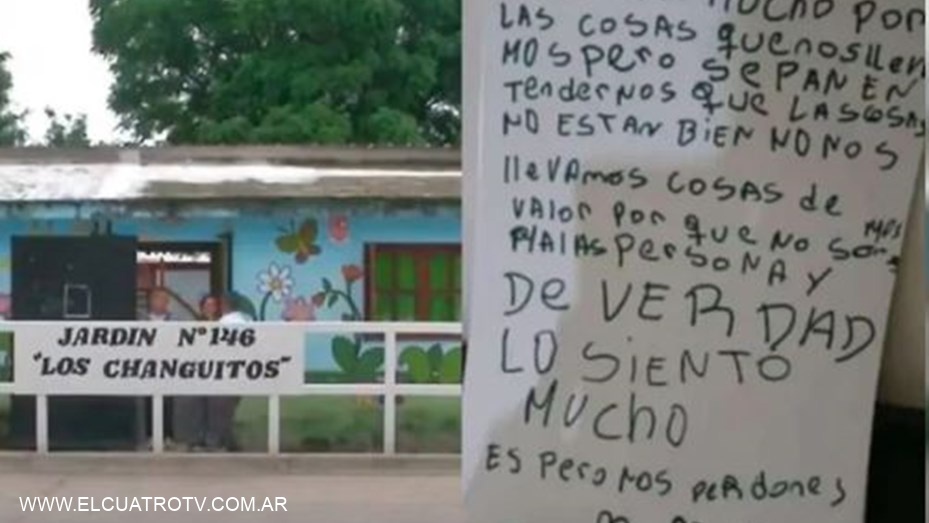 JARDIN N°146
"LOS CHANGUITOS"
WWW.ELCUATROTV.COM.AR
MUCHO POR
LAS COSAS quenosllev
MOS pero SEPAN EN
TenderNos QUE LAS COSAS
NO ESTAN BIEN NO NOS
llevAmos COSAS de
VAlor Por que NO SOMOS
MAlAS PersoNA Y
De VERDAD
LO SIENTO
MUCHO
Es Pero NOS PERdones